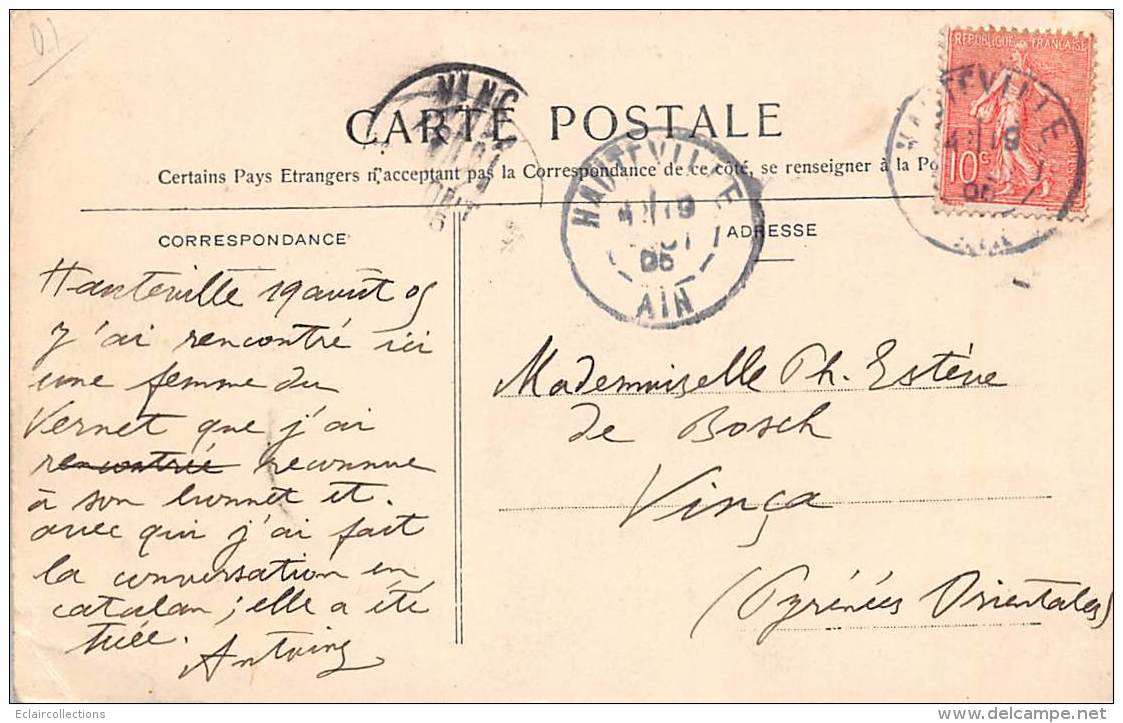 01
CARTE POSTALE
Certains Pays Etrangers n'acceptant pas la Correspondance de ce côté, se renseigner à la Po
REPUBLIQUE FRANÇAISE
10c
HAUTEVILLE
19
05
HAUTEVILLE
19
05
AIN
CORRESPONDANCE
Hauteville 19 août 05
J'ai rencontré ici
une femme du
Vernet que j'ai
rencontrée reconnue
à son bonnet et
avec qui j'ai fait
la conversation en
catalan ; elle a été
tuée.
Antoine
ADRESSE
Mademoiselle Ph. Estève
de Bosch
Vinça
(Pyrénées Orientales)
Eclaircollections
www.delcampe.net